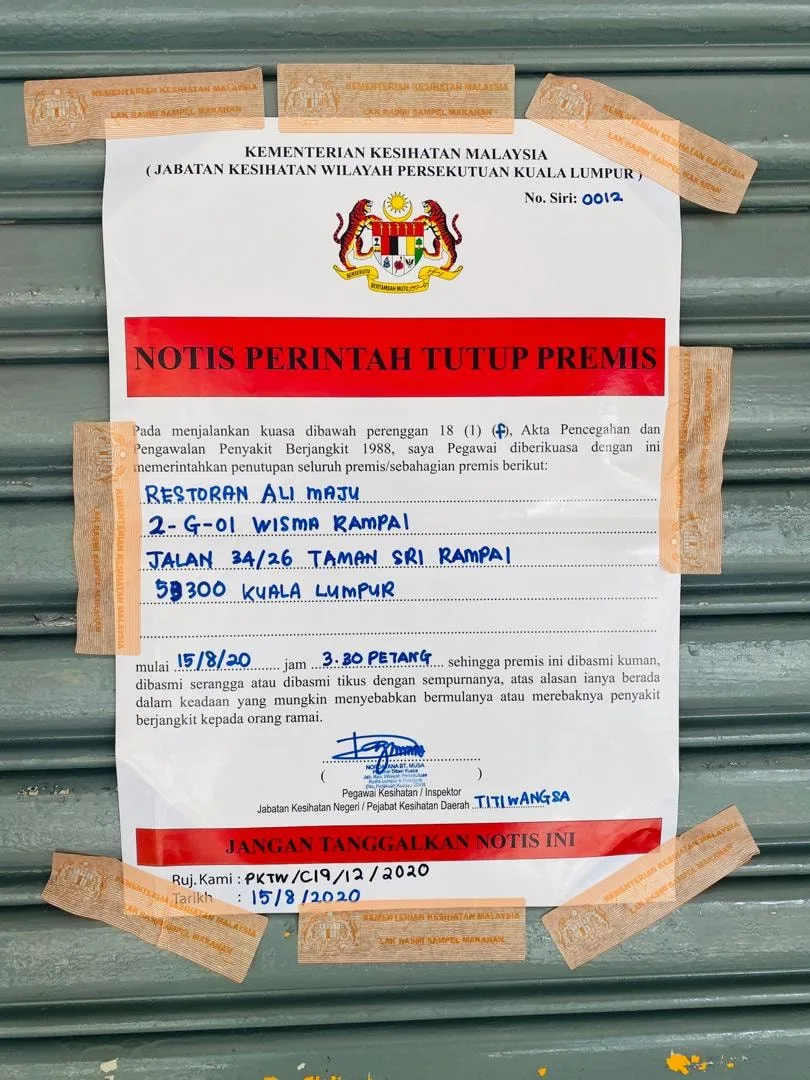 KEMENTERIAN KESIHATAN MALAYSIA
LAK RASMI SAMPEL MAKANAN
KEMENTERIAN KESIHATAN MALAYSIA
LAK RASMI SAMPEL MAKANAN
KEMENTERIAN KESIHATAN MALAYSIA
LAK RASMI SAMPEL MAKANAN
KEMENTERIAN KESIHATAN MALAYSIA
( JABATAN KESIHATAN WILAYAH PERSEKUTUAN KUALA LUMPUR )
No. Siri: 0012
BERSEKUTU BERTAMBAH MUTU
NOTIS PERINTAH TUTUP PREMIS
Pada menjalankan kuasa dibawah perenggan 18 (1) (f), Akta Pencegahan dan
Pengawalan Penyakit Berjangkit 1988, saya Pegawai diberikuasa dengan ini
memerintahkan penutupan seluruh premis/sebahagian premis berikut:
RESTORAN ALI MAJU
2-G-01 WISMA RAMPAI
JALAN 34/26 TAMAN SRI RAMPAI
53300 KUALA LUMPUR
mulai 15/8/20 jam 3.30 PETANG sehingga premis ini dibasmi kuman,
dibasmi serangga atau dibasmi tikus dengan sempurnanya, atas alasan ianya berada
dalam keadaan yang mungkin menyebabkan bermulanya atau merebaknya penyakit
berjangkit kepada orang ramai.
BT. MUSA
( )
Pegawai Kesihatan / Inspektor
Jabatan Kesihatan Negeri / Pejabat Kesihatan Daerah TITIWANGSA
JANGAN TANGGALKAN NOTIS INI
Ruj.Kami : PKTW/C19/12/2020
Tarikh : 15/8/2020
KEMENTERIAN KESIHATAN MALAYSIA
LAK RASMI SAMPEL MAKANAN
KEMENTERIAN KESIHATAN MALAYSIA
LAK RASMI SAMPEL MAKANAN
KEMENTERIAN KESIHATAN MALAYSIA
LAK RASMI SAMPEL MAKANAN